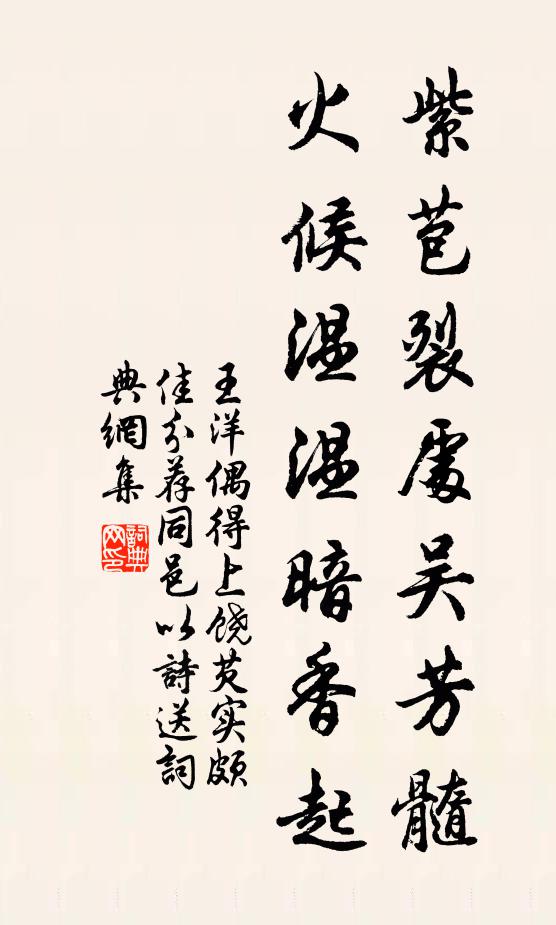 紫苞裂處吴芳髓
火候温温暗香起
王洋偶得上饶芡实颇
佳分荐同邑以詩送詞
典網集
詞典网印